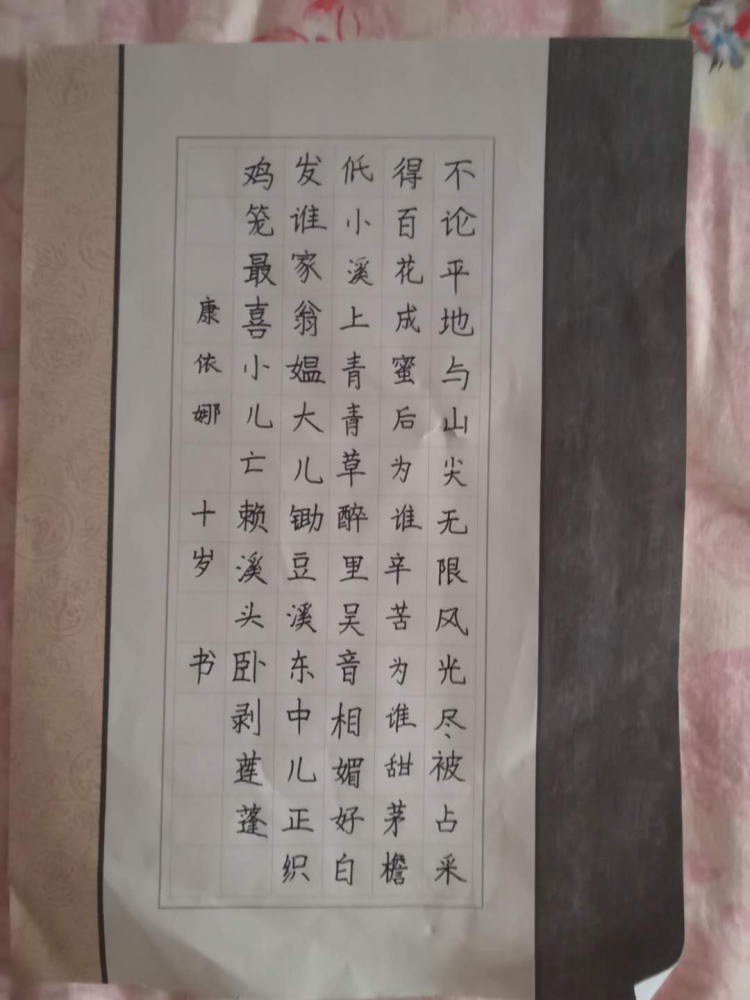 不论平地与山尖无限风光尽被占采
得百花成蜜后为谁辛苦为谁甜茅檐
低小溪上青青草醉里吴音相媚好白
发谁家翁媪大儿锄豆溪东中儿正织
鸡笼最喜小儿亡赖溪头卧剥莲蓬
康依娜 十岁 书